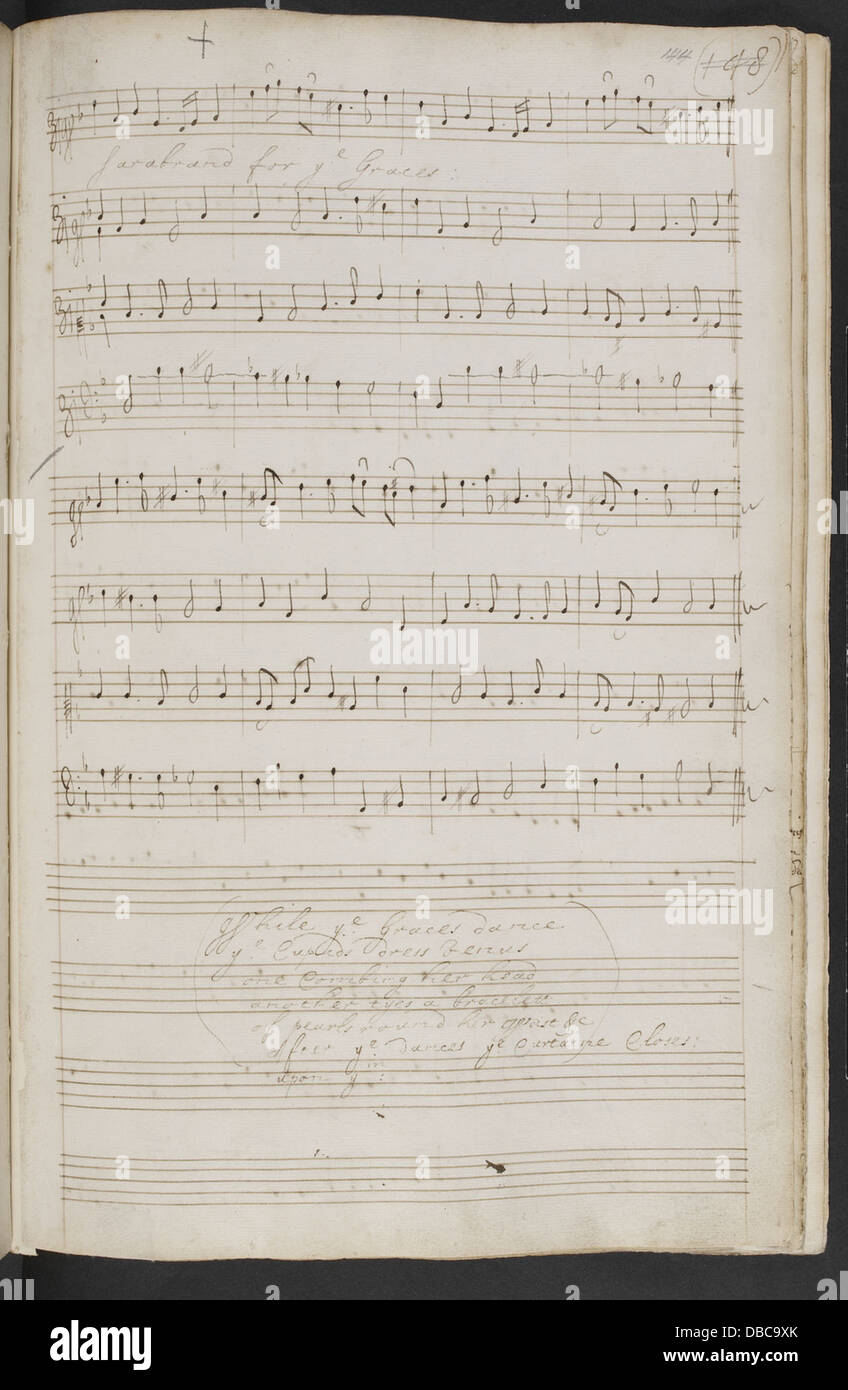 144 (148)
Sarabrand for yᵉ Graces:
While yᵉ Graces dance
yᵉ Cupids dress Venus
one Combing her head
another tyes a bracelett
of pearls round her wrist &c
After yᵉ dances yᵉ Curtaine Closes:
upon yᵐ:
a alamy stock photo
alamy
Image ID: DBC9XK
www.alamy.com